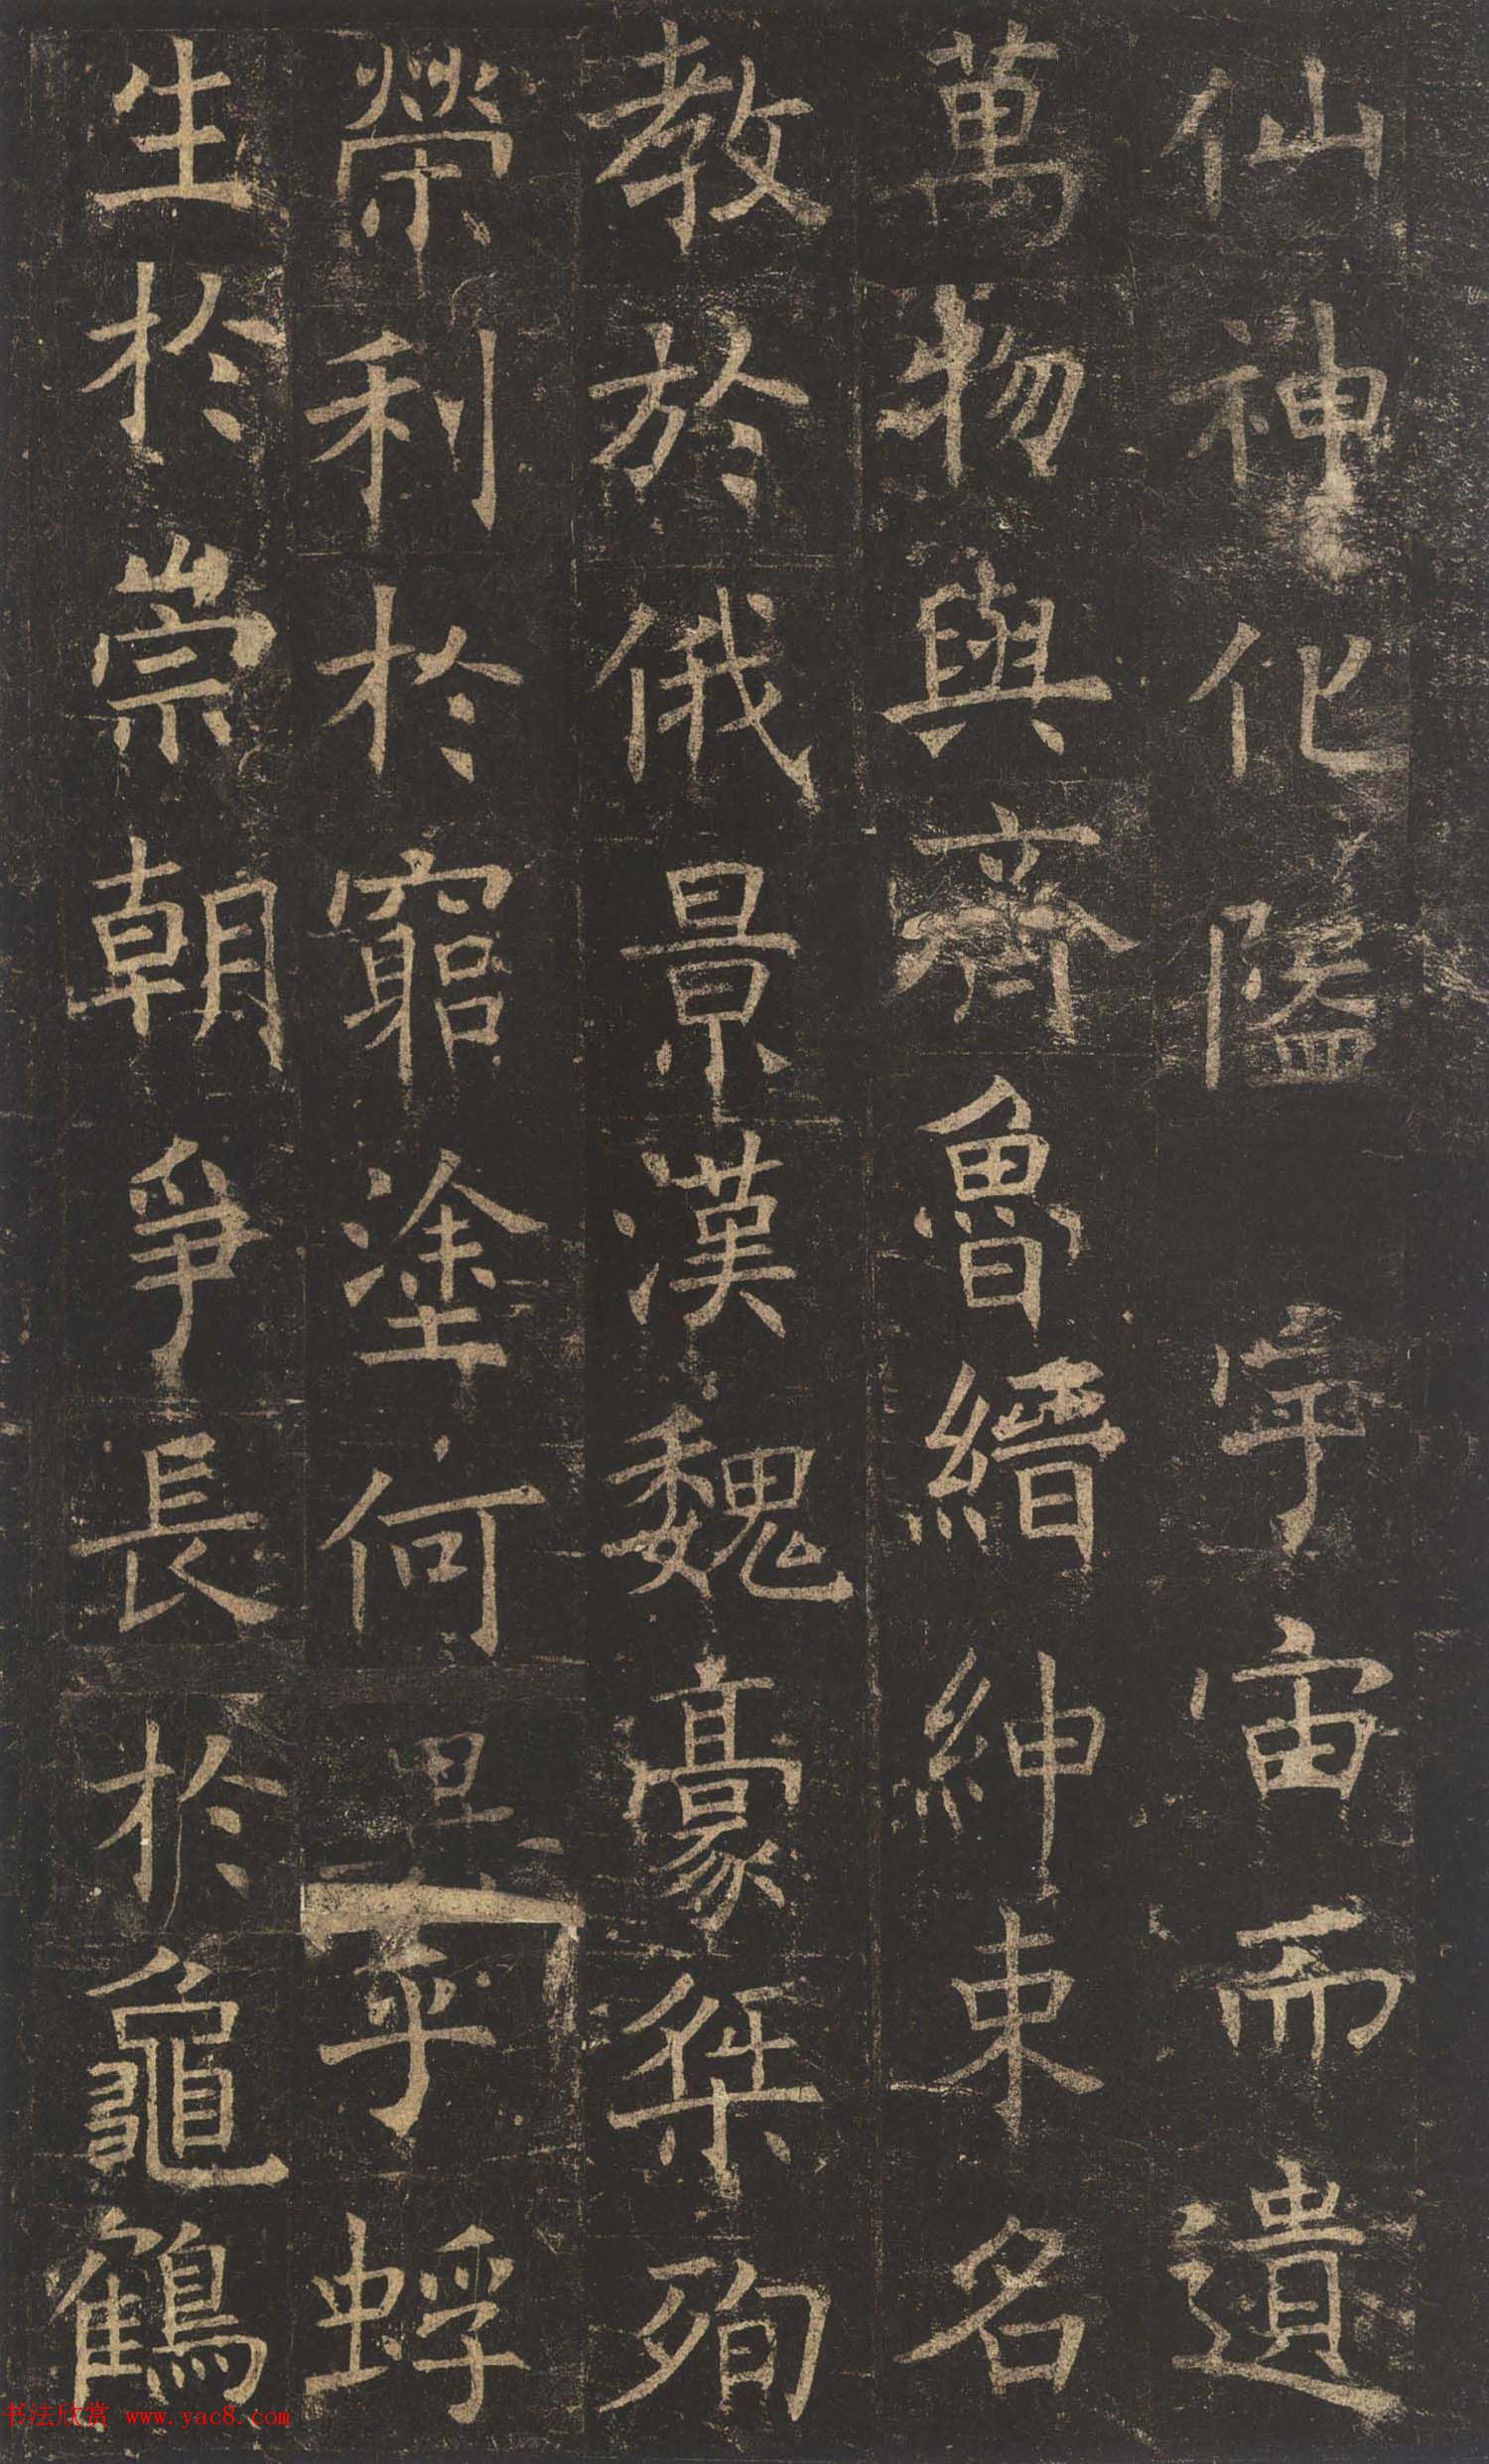 仙神化隘宇宙而遺
萬物與齊魯縉紳束名
教於俄景漢魏豪桀殉
榮利於窮塗何異乎蜉
生於崇朝爭長於龜鶴
书法欣赏 www.yac8.com